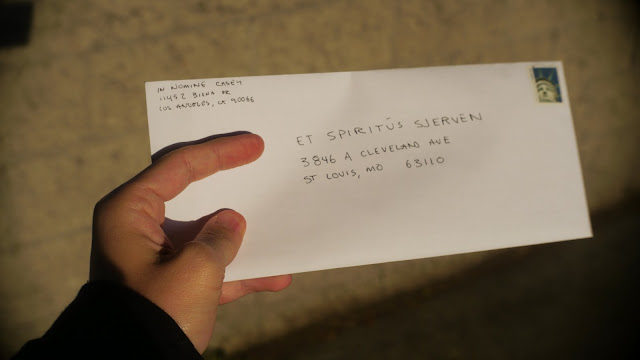 IN NOMINE CASEY
11452 BIONA DR
LOS ANGELES, CA 90066
ET SPIRITŪS SJERVĒN
3846 A CLEVELAND AVE
ST LOUIS, MO 63110